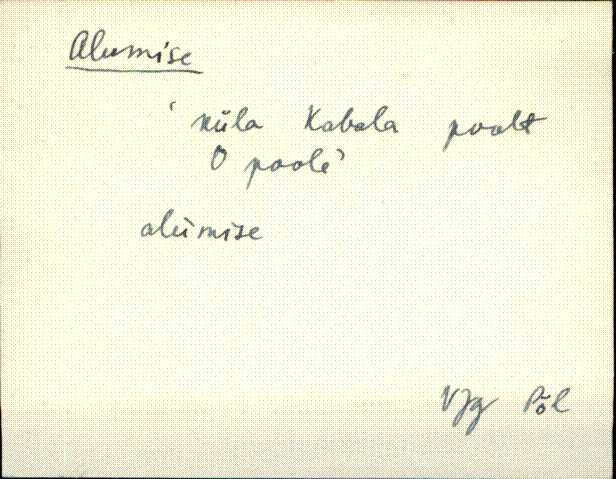 Alumise
'küla Kabala poolt
O poole'
alumise
VJg Põl